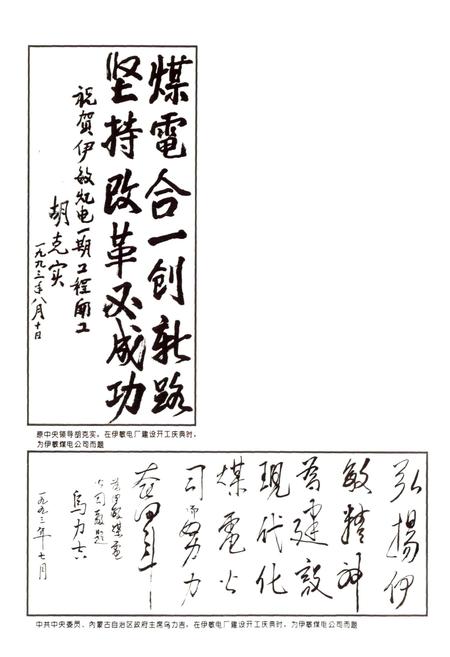 煤電合一創新路
坚持改革必成功
祝贺伊敏煤电一期工程開工
胡克实
一九九三年八月十日
原中央领导胡克实，在伊敏电厂建设开工庆典时，
为伊敏煤电公司而题
弘揚伊
敏精神
為建設
現代化
煤電公
司而努力
奋鬥
为伊敏煤電
公司敬题
乌力吉
一九九三年七月
中共中央委员、内蒙古自治区政府主席乌力吉，在伊敏电厂建设开工庆典时，为伊敏煤电公司而题